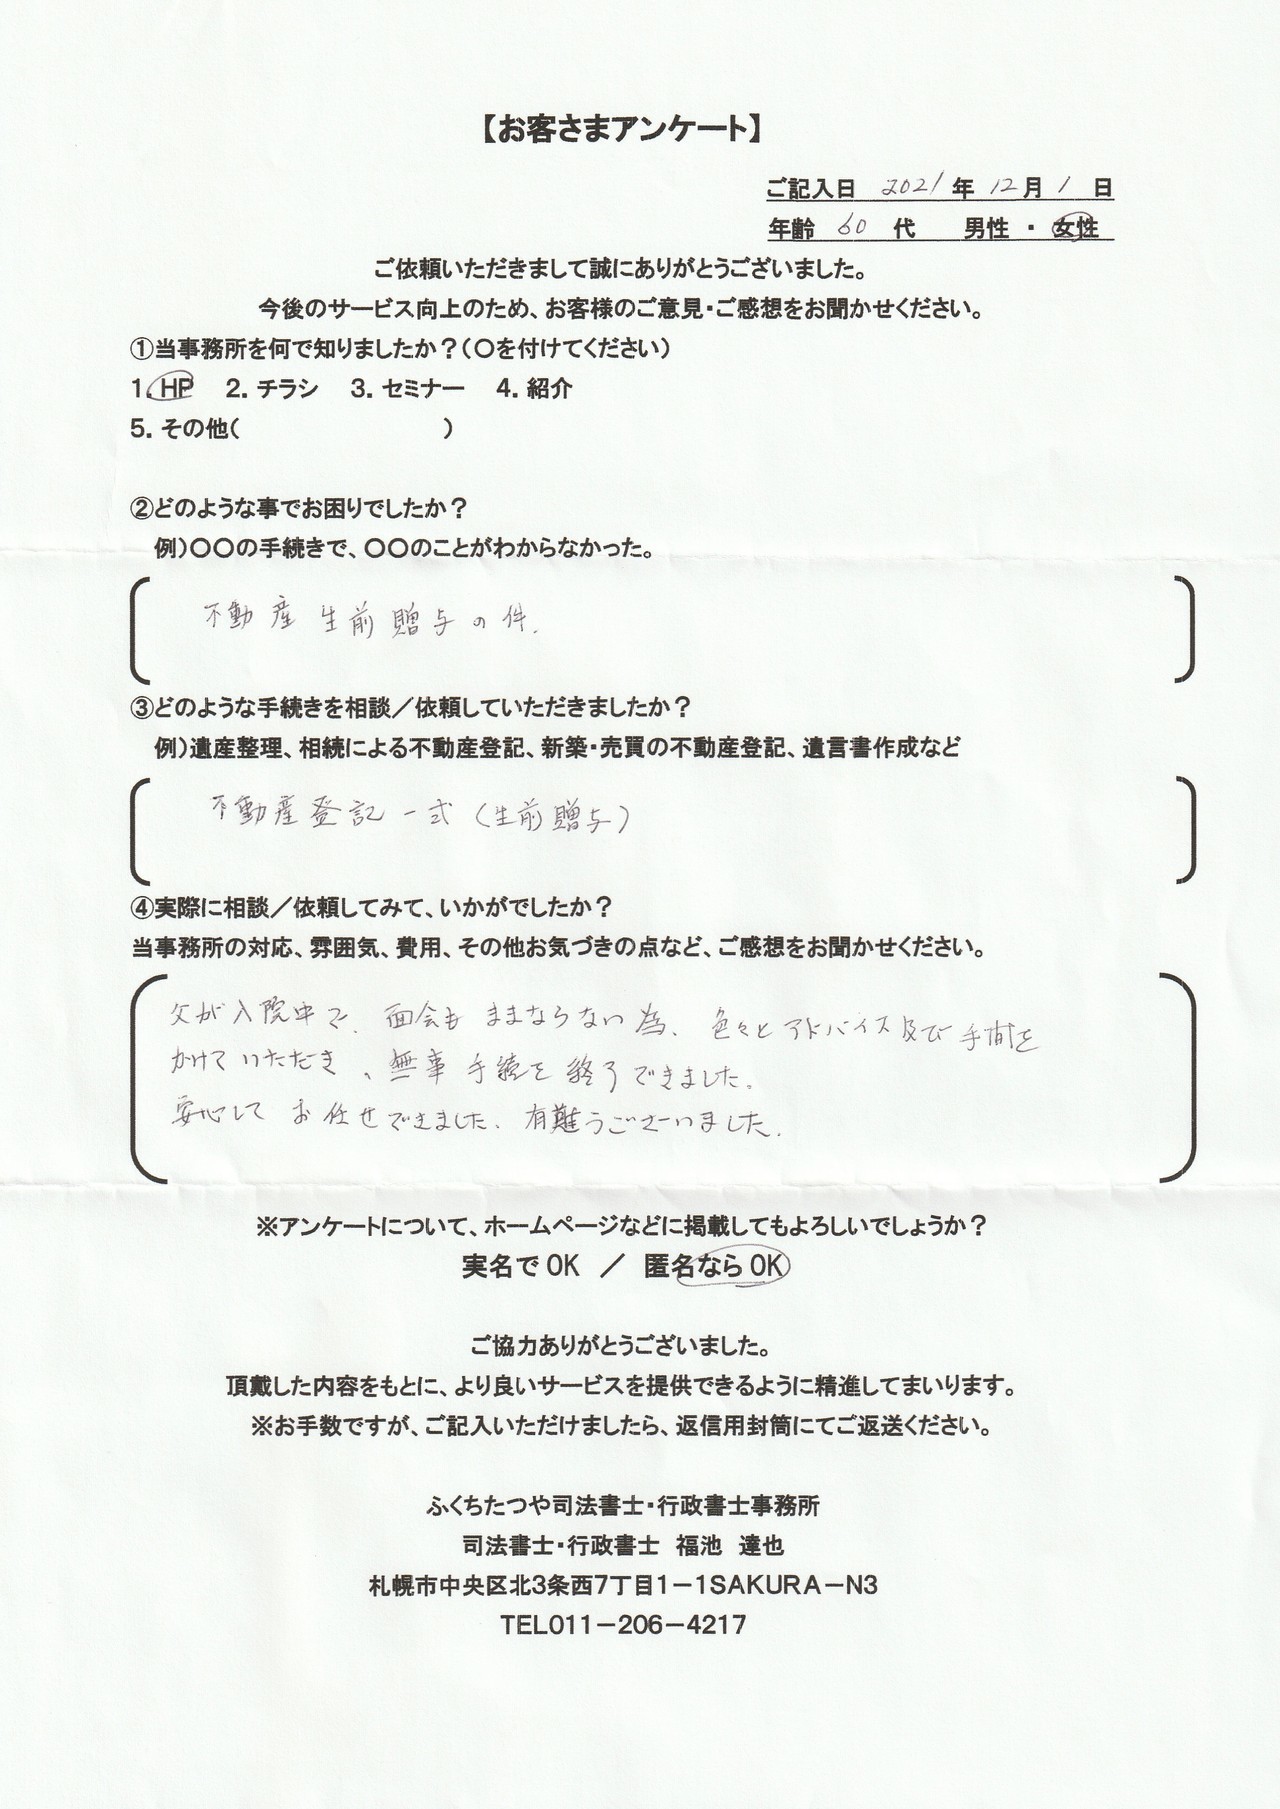 【お客さまアンケート】
ご記入日 2021年 12月 1 日
年齢 60 代 男性 ・ 女性
ご依頼いただきまして誠にありがとうございました。
今後のサービス向上のため、お客様のご意見・ご感想をお聞かせください。
①当事務所を何で知りましたか？（〇を付けてください）
1. HP 2. チラシ 3. セミナー 4. 紹介
5. その他（ ）
②どのような事でお困りでしたか？
例）〇〇の手続きで、〇〇のことがわからなかった。
不動産生前贈与の件.
③どのような手続きを相談／依頼していただきましたか？
例）遺産整理、相続による不動産登記、新築・売買の不動産登記、遺言書作成など
不動産登記一式（生前贈与）
④実際に相談／依頼してみて、いかがでしたか？
当事務所の対応、雰囲気、費用、その他お気づきの点など、ご感想をお聞かせください。
父が入院中で、面会もままならない為、色々とアドバイス及び手間を
かけていただき、無事手続を終了できました。
安心してお任せできました、有難うございました。
※アンケートについて、ホームページなどに掲載してもよろしいでしょうか？
実名でOK ／ 匿名ならOK
ご協力ありがとうございました。
頂戴した内容をもとに、より良いサービスを提供できるように精進してまいります。
※お手数ですが、ご記入いただけましたら、返信用封筒にてご返送ください。
ふくちたつや司法書士・行政書士事務所
司法書士・行政書士 福池 達也
札幌市中央区北3条西7丁目1－1SAKURA－N3
TEL011－206－4217